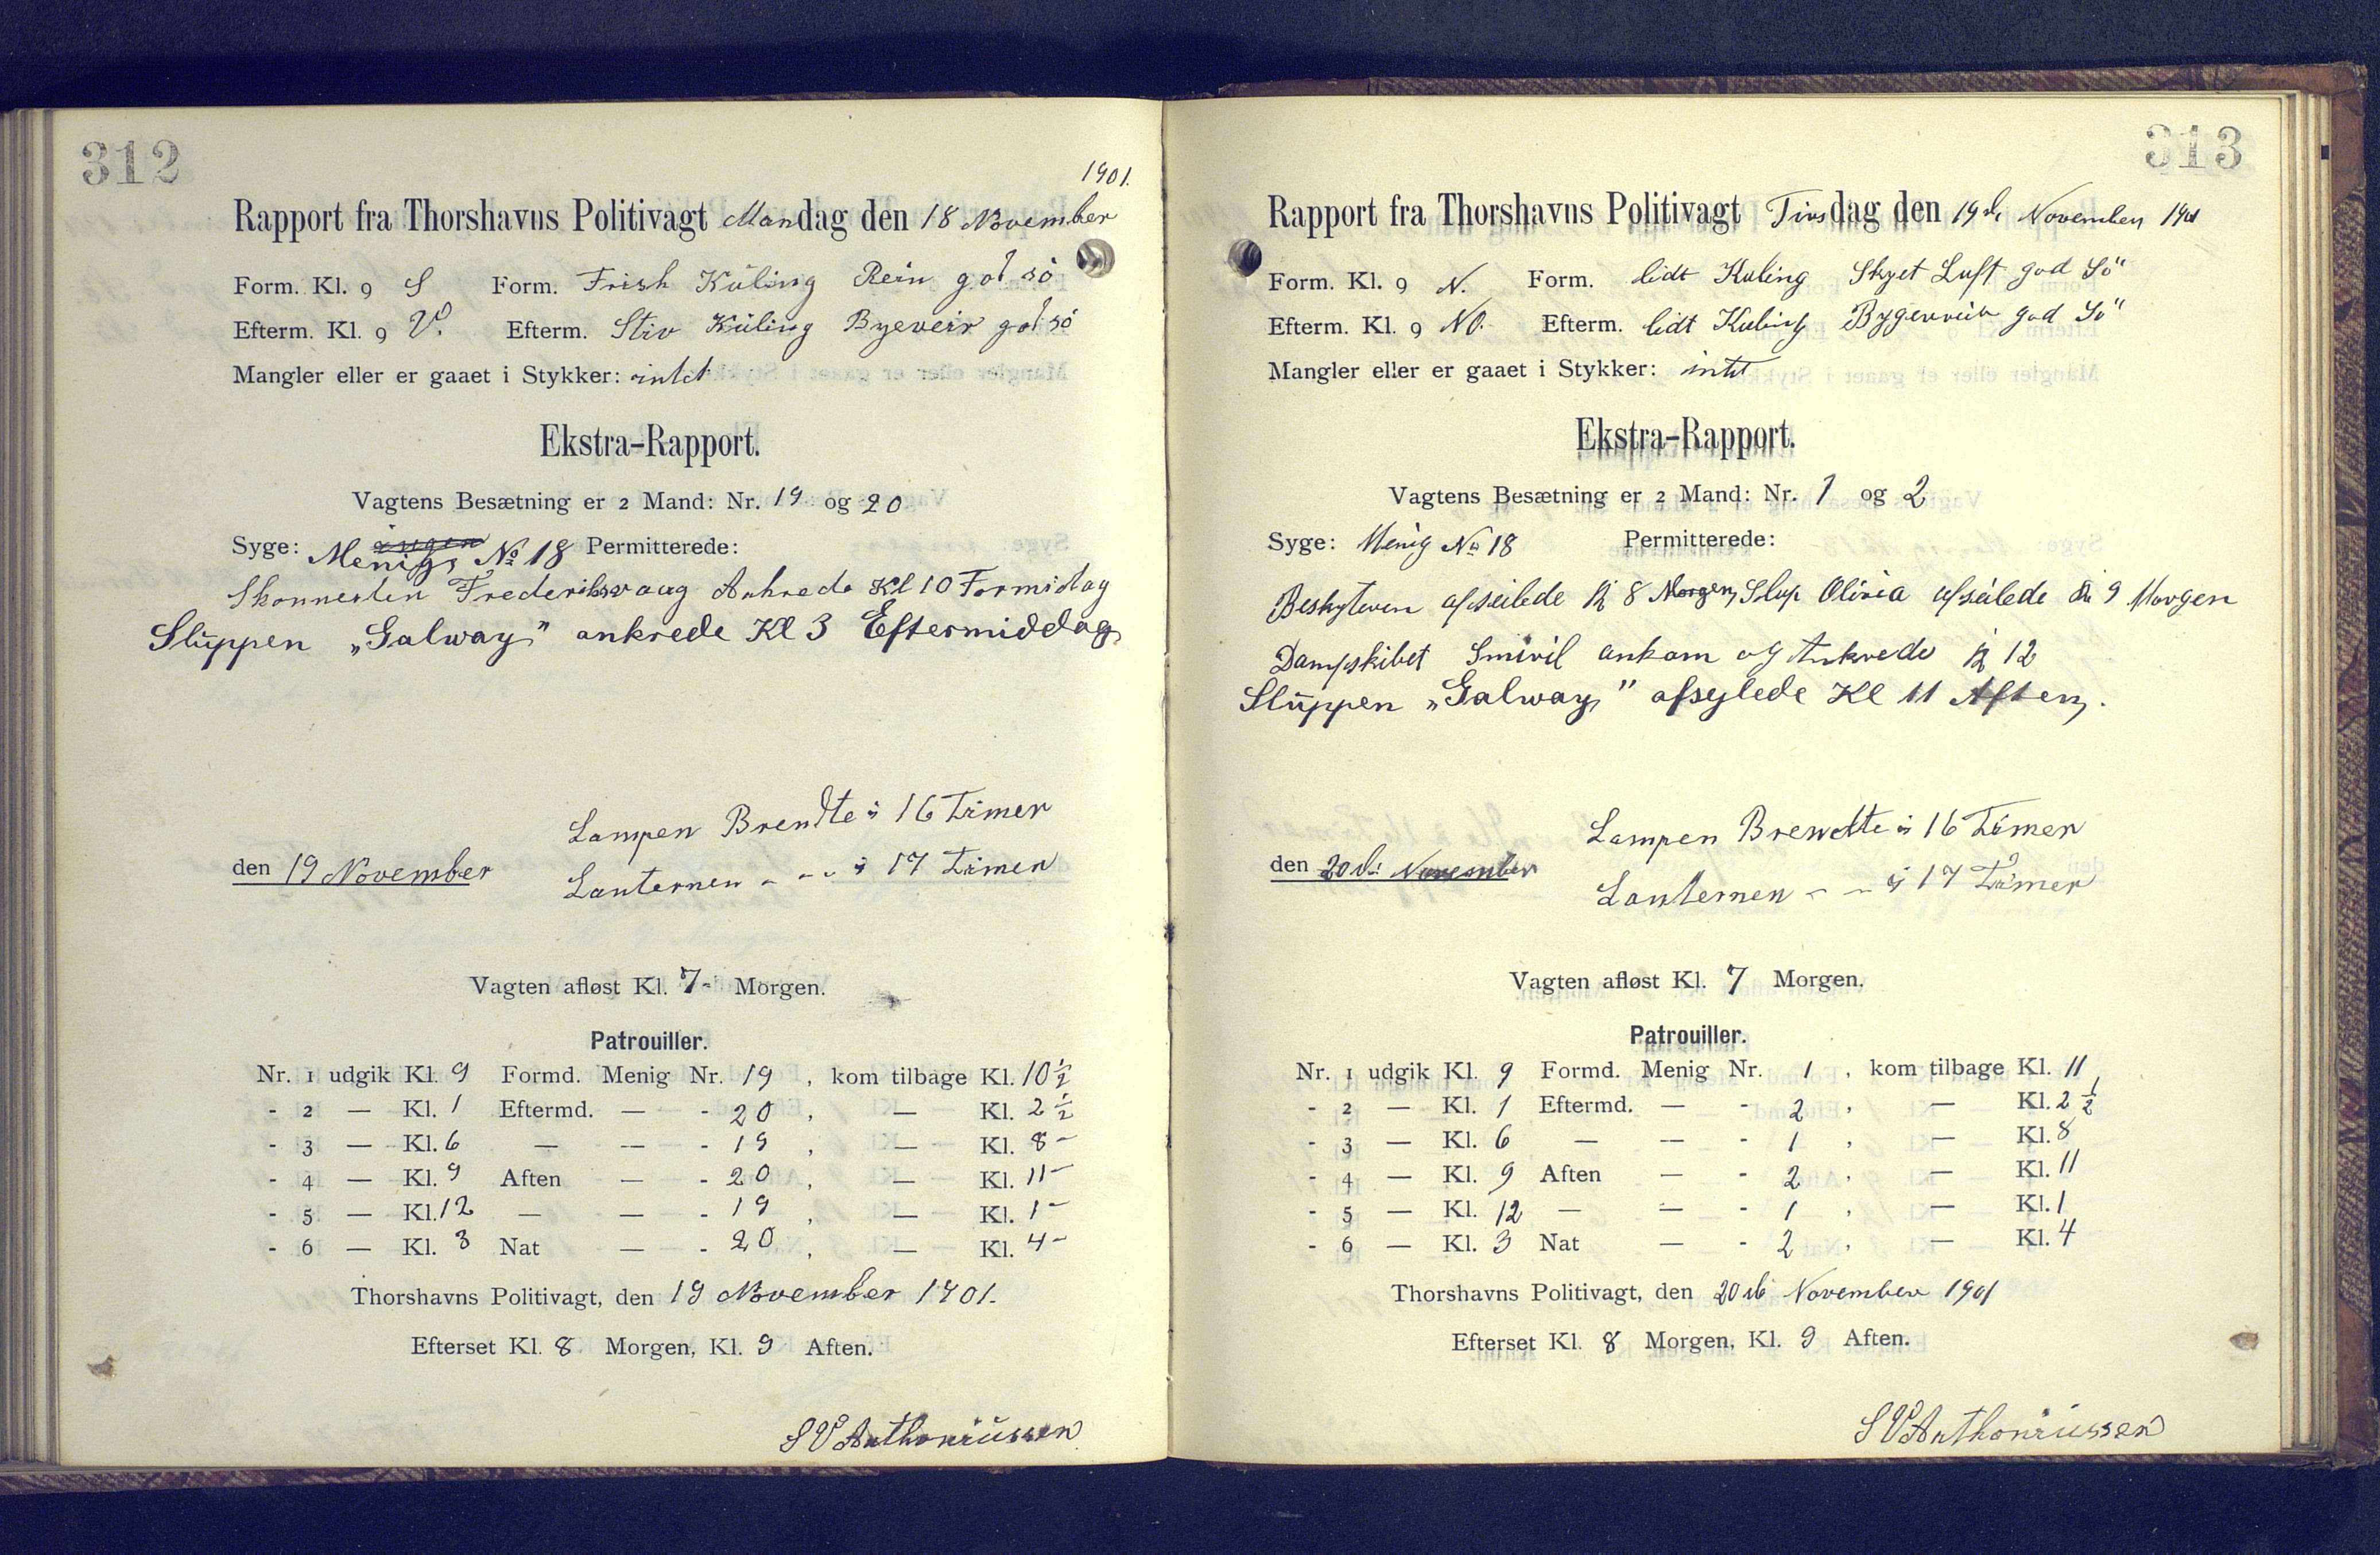 312
1901.
Rapport fra Thorshavns Politivagt Mandag den 18 November
Form. Kl. 9 S Form. Frisk Küling Rein god sö
Efterm. Kl. 9 V. Efterm. Stiv Küling Byeveir god sö
Mangler eller er gaaet i Stykker: intet
Ekstra-Rapport.
Vagtens Besætning er 2 Mand: Nr. 19 og 20
Syge: Menig No 18 Permitterede:
Skonnerten Frederiksvaag Ankrede Kl 10 Formidag
Slüppen „Galway" ankrede Kl 3 Eftermiddag
Lampen Brendte i 16 Timer
den 19 November
Lanternen - - - i 17 Timer
Vagten afløst Kl. 7- Morgen.
Patrouiller.
Nr. 1 udgik Kl. 9 Formd. Menig Nr. 19 , kom tilbage Kl. 10½
- 2 — Kl. 1 Eftermd. — - 20 , — Kl. 2½
- 3 — Kl. 6 — — - 19 , — Kl. 8-
- 4 — Kl. 9 Aften — - 20 , — Kl. 11-
- 5 — Kl. 12 — — - 19 , — Kl. 1-
- 6 — Kl. 3 Nat — - 20 , — Kl. 4-
Thorshavns Politivagt, den 19 November 1901.
Efterset Kl. 8 Morgen, Kl. 9 Aften.
S V Anthoniüssen
313
Rapport fra Thorshavns Politivagt Tirsdag den 19de November 1901
Form. Kl. 9 N. Form. lidt Kuling Skyet Luft god Sö
Efterm. Kl. 9 NO. Efterm. lidt Kuling Bygerveir god Sö
Mangler eller er gaaet i Stykker: intet
Ekstra-Rapport.
Vagtens Besætning er 2 Mand: Nr. 1 og 2
Syge: Menig No 18 Permitterede:
Beskyteren afseilede Kl 8 Morgen, Slup Olivia afseilede Kl 9 Morgen
Dampskibet Smiril ankom og Ankrede Kl 12
Slüppen „Galway" afsejlede Kl 11 Aften.
Lampen Brendte i 16 Timer
den 20de November
Lanternen - - i 17 Timer
Vagten afløst Kl. 7 Morgen.
Patrouiller.
Nr. 1 udgik Kl. 9 Formd. Menig Nr. 1 , kom tilbage Kl. 11
- 2 — Kl. 1 Eftermd. — - 2 , — Kl. 2½
- 3 — Kl. 6 — — - 1 , — Kl. 8
- 4 — Kl. 9 Aften — - 2 , — Kl. 11
- 5 — Kl. 12 — — - 1 , — Kl. 1
- 6 — Kl. 3 Nat — - 2 , — Kl. 4
Thorshavns Politivagt, den 20de November 1901
Efterset Kl. 8 Morgen, Kl. 9 Aften.
S V Anthoniüssen